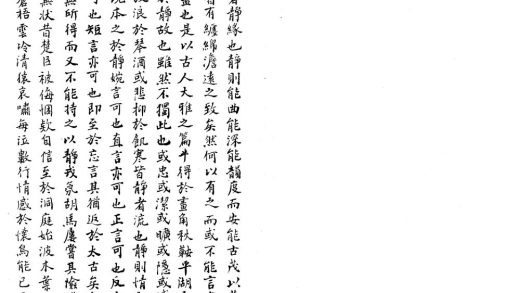 者靜緣也靜則能曲能深能韻度而安能古茂以
皆有纏綿澹遠之致矣然何以有之而或不能言
盡也是以古人大雅之篇半得於畫角秋鞍平湖
於靜故也雖然不獨此也或忠或潔或曠或隱或
放浪於琴酒或悲抑於飢寒皆靜者流也靜則情
況本之於靜婉言可也直言亦可也正言可也反
可也矩言亦可也即至於忘言具猶返於太古矣
無所得而又不能持之以靜戎氛胡馬屢嘗其險
無狀昔楚臣被侮悃欵自信至於洞庭始波木葉
蒼梧雲冷清猿哀嘯每泣數行情感於懷烏能已